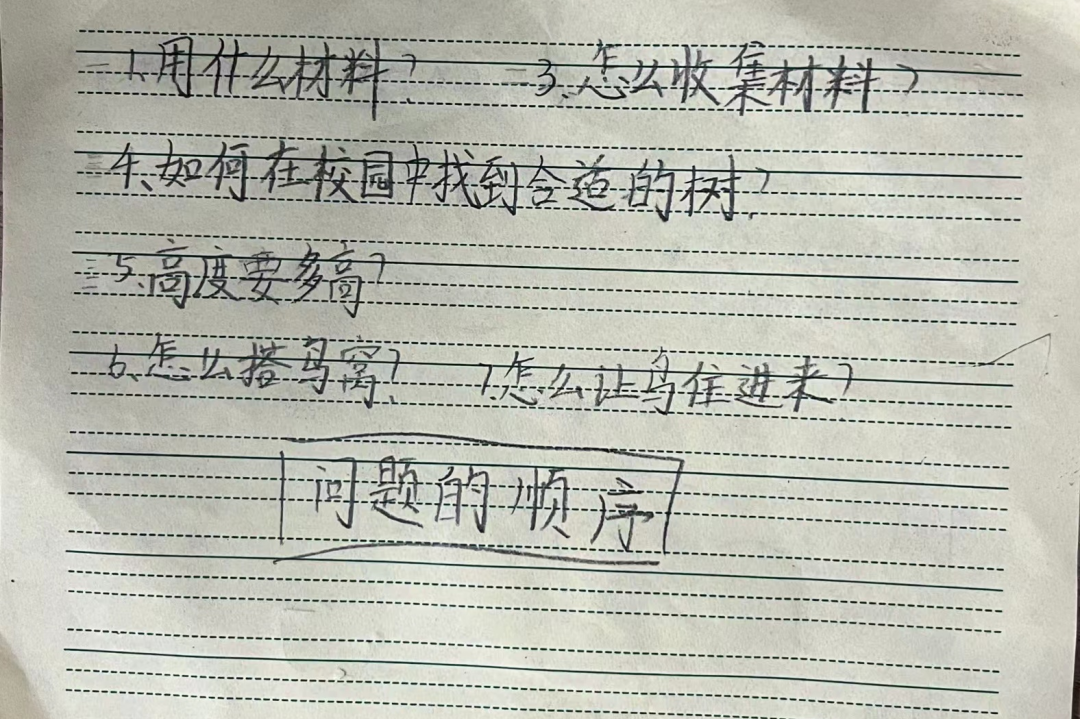 1、用什么材料? 3、怎么收集材料?
4、如何在校园中找到合适的树?
5、高度要多高?
6、怎么搭鸟窝? 7、怎么让鸟住进来?
问题的顺序